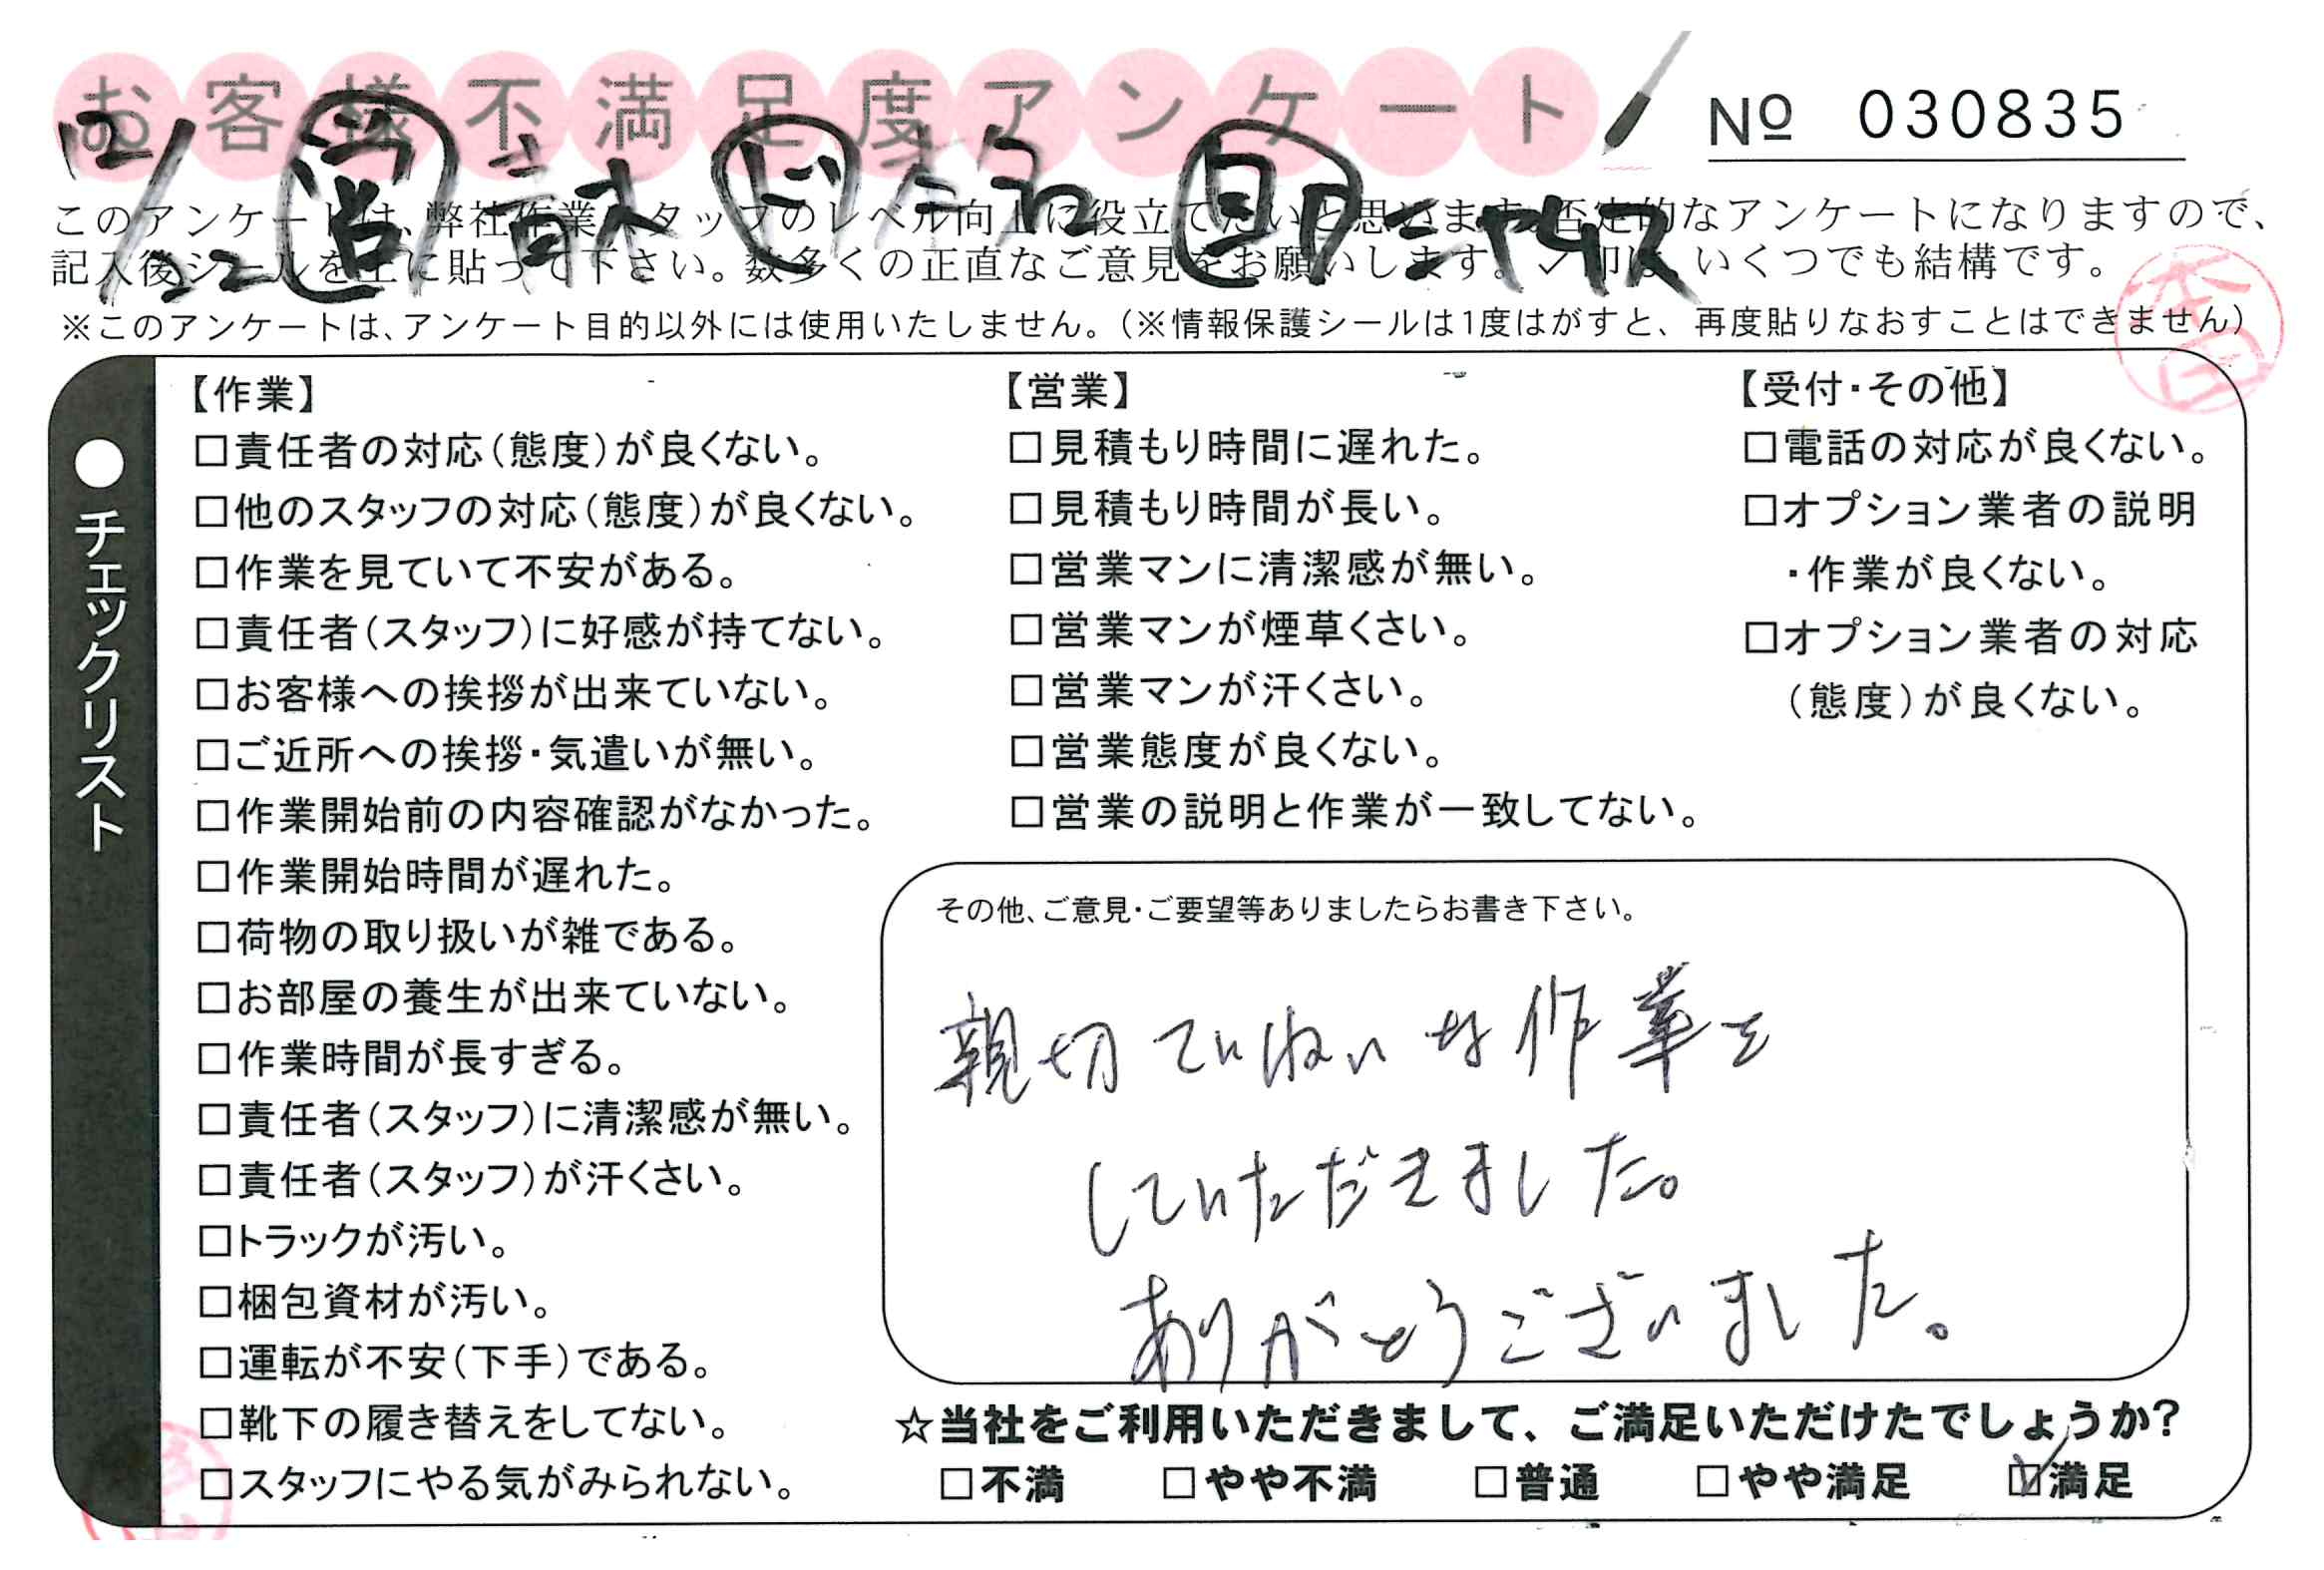 お客様不満足度アンケート
№ 030835
12/22
このアンケートは、弊社作業スタッフのレベル向上に役立てたいと思います。否定的なアンケートになりますので、
記入後シールを上に貼って下さい。数多くの正直なご意見をお願いします。✓印は、いくつでも結構です。
※このアンケートは、アンケート目的以外には使用いたしません。(※情報保護シールは1度はがすと、再度貼りなおすことはできません)
●チェックリスト
【作業】
□責任者の対応(態度)が良くない。
□他のスタッフの対応(態度)が良くない。
□作業を見ていて不安がある。
□責任者(スタッフ)に好感が持てない。
□お客様への挨拶が出来ていない。
□ご近所への挨拶・気遣いが無い。
□作業開始前の内容確認がなかった。
□作業開始時間が遅れた。
□荷物の取り扱いが雑である。
□お部屋の養生が出来ていない。
□作業時間が長すぎる。
□責任者(スタッフ)に清潔感が無い。
□責任者(スタッフ)が汗くさい。
□トラックが汚い。
□梱包資材が汚い。
□運転が不安(下手)である。
□靴下の履き替えをしてない。
□スタッフにやる気がみられない。
【営業】
□見積もり時間に遅れた。
□見積もり時間が長い。
□営業マンに清潔感が無い。
□営業マンが煙草くさい。
□営業マンが汗くさい。
□営業態度が良くない。
□営業の説明と作業が一致してない。
【受付・その他】
□電話の対応が良くない。
□オプション業者の説明
・作業が良くない。
□オプション業者の対応
(態度)が良くない。
その他、ご意見・ご要望等ありましたらお書き下さい。
親切ていねいな作業を
していただきました。
ありがとうございました。
☆当社をご利用いただきまして、ご満足いただけたでしょうか?
□不満 □やや不満 □普通 □やや満足 ☑満足